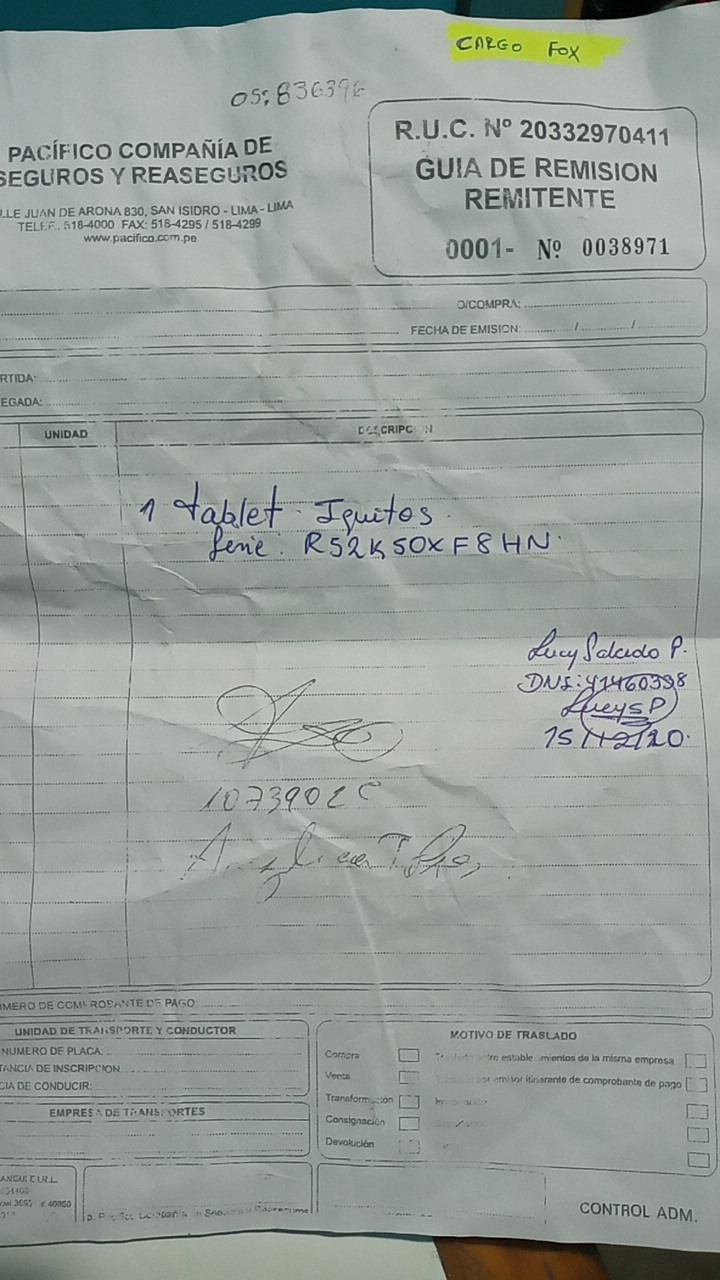 CARGO FOX
PACÍFICO COMPAÑÍA DE
SEGUROS Y REASEGUROS
LLE JUAN DE ARONA 830, SAN ISIDRO - LIMA - LIMA
TELEF.: 518-4000 FAX: 518-4295 / 518-4299
www.pacifico.com.pe
R.U.C. Nº 20332970411
GUIA DE REMISION
REMITENTE
0001- Nº 0038971
O/COMPRA:
FECHA DE EMISION: / /
RTIDA:
EGADA:
UNIDAD DESCRIPCION
1 tablet Iquitos
Serie: R52K50XF8HN
Lucy Salcedo P.
DNI: 41460398
LucySP
15/12/20
MERO DE COMPROBANTE DE PAGO:
UNIDAD DE TRANSPORTE Y CONDUCTOR
NUMERO DE PLACA:
TANCIA DE INSCRIPCION
CIA DE CONDUCIR:
EMPRESA DE TRANSPORTES
MOTIVO DE TRASLADO
Compra
Venta
Transformación
Consignación
Devolución
entre establecimientos de la misma empresa
por emisor itinerante de comprobante de pago
p. Pacífico Compañía de Seguros y Reaseguros
CONTROL ADM.